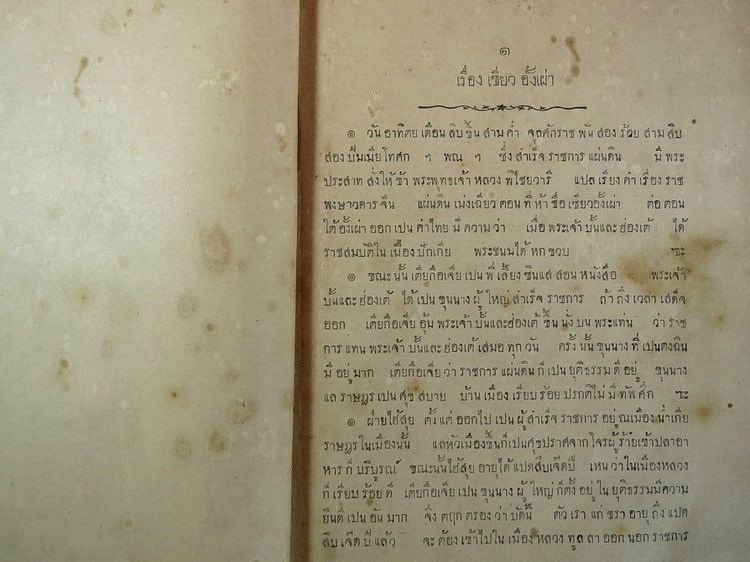 ๑
เรื่อง เซี่ยว อั้งเผ่า
๏ วัน อาทิตย เดือน สิบ ขึ้น สาม ค่ำ จุลศักราช พัน สอง ร้อย สาม สิบ
สอง ปีมเมีย โทศก ฯ พณ ฯ ซึ่ง สำเร็จ ราชการ แผ่นดิน มี พระ
ประสาท สั่งให้ ข้า พระพุทธเจ้า หลวง พิไชยวารี แปล เรียง คำ เรื่อง ราช
พงษาวดาร จีน แผ่นดิน เมงเฉียว ตอน ที่ ห้า ชื่อ เซียวอั้งเผ่า ต่อ ตอน
ใต้ อั้งเผ่า ออก เปน คำไทย มี ความ ว่า เมื่อ พระเจ้า บั้นและ ฮ่องเต้ ได้
ราชสมบัติใน เมือง ปักเกีย พระชนมได้ หก ขวบ ๚ะ
๏ ขณะ นั้น เตียกือเจีย เปน พี่ เลี้ยง ซินแส สอน หนังสือ พระเจ้า
บั้นและฮ่องเต้ ได้ เปน ขุนนาง ผู้ ใหญ่ สำเร็จ ราชการ ถ้า ถึง เวลา เสด็จ
ออก เตียกือเจีย อุ้ม พระเจ้า บั้นและฮ่องเต้ ขึ้น นั่ง บน พระแท่น ว่า ราช
การ แทน พระเจ้า บั้นและ ฮ่องเต้ เสมอ ทุก วัน ครั้ง นั้น ขุนนาง ที่ เปนตงฉิน
มี อยู่ มาก เตียกือเจีย ว่า ราชการ แผ่นดิน ก็ เปน ยุติธรรม ดี อยู่ ขุนนาง
แล ราษฎร เปน ศุข สบาย บ้าน เมือง เรียบ ร้อย ปรกติ ไม่ มี ทัพ ศึก ๚ะ
๏ ฝ่าย ไฮ้สุย ตั้ง แต่ ออก ไป เปน ผู้ สำเร็จ ราชการ อยู่ ณเมือง น่ำเกีย
ราษฎร ในเมือง นั้น แลหัวเมือง ขึ้นก็ เปนศุขปราศจาก โจรผู้ ร้าย เข้า ปลา อา
หาร ก็ บริบูรณ์ ขณะนั้น ไฮ้สุย อายุ ได้ แปดสิบเจ็ดปี เหน ว่า ใน เมืองหลวง
ก็ เรียบ ร้อย ดี เตียกือเจีย เปน ขุนนาง ผู้ ใหญ่ ก็ตั้ง อยู่ ใน ยุติธรรมมีความ
ยินดี เปน อัน มาก จึ่ง ตฤก ตรอง ว่า บัดนี้ ตัว เรา แก่ ชรา อายุ ถึง แปด
สิบ เจ็ด ปี แล้ว จะ ต้อง เข้า ไป ใน เมือง หลวง ทูล ลา ออก นอก ราชการ